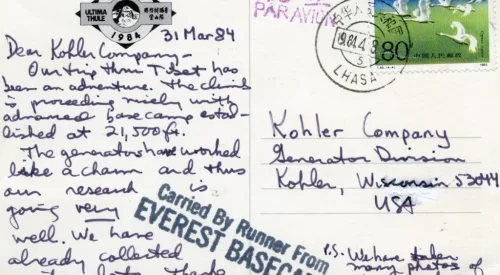 ULTIMA THULE
1984
31 Mar 84
Dear Kohler Company -
Our trip thru Tibet has
been an adventure. The climb
is proceeding nicely with
advanced base camp estab-
lished at 21,500 ft.
The generators have worked
like a charm and thus
our research is
going very
well. We have
already collected
PAR AVION
1984.4.8
5
LHASA
80
中国人民邮政
Kohler Company
Generator Division
Kohler, Wisconsin 53044
USA
Carried By Runner From
EVEREST BASECA
P.S. We have taken
many photos of